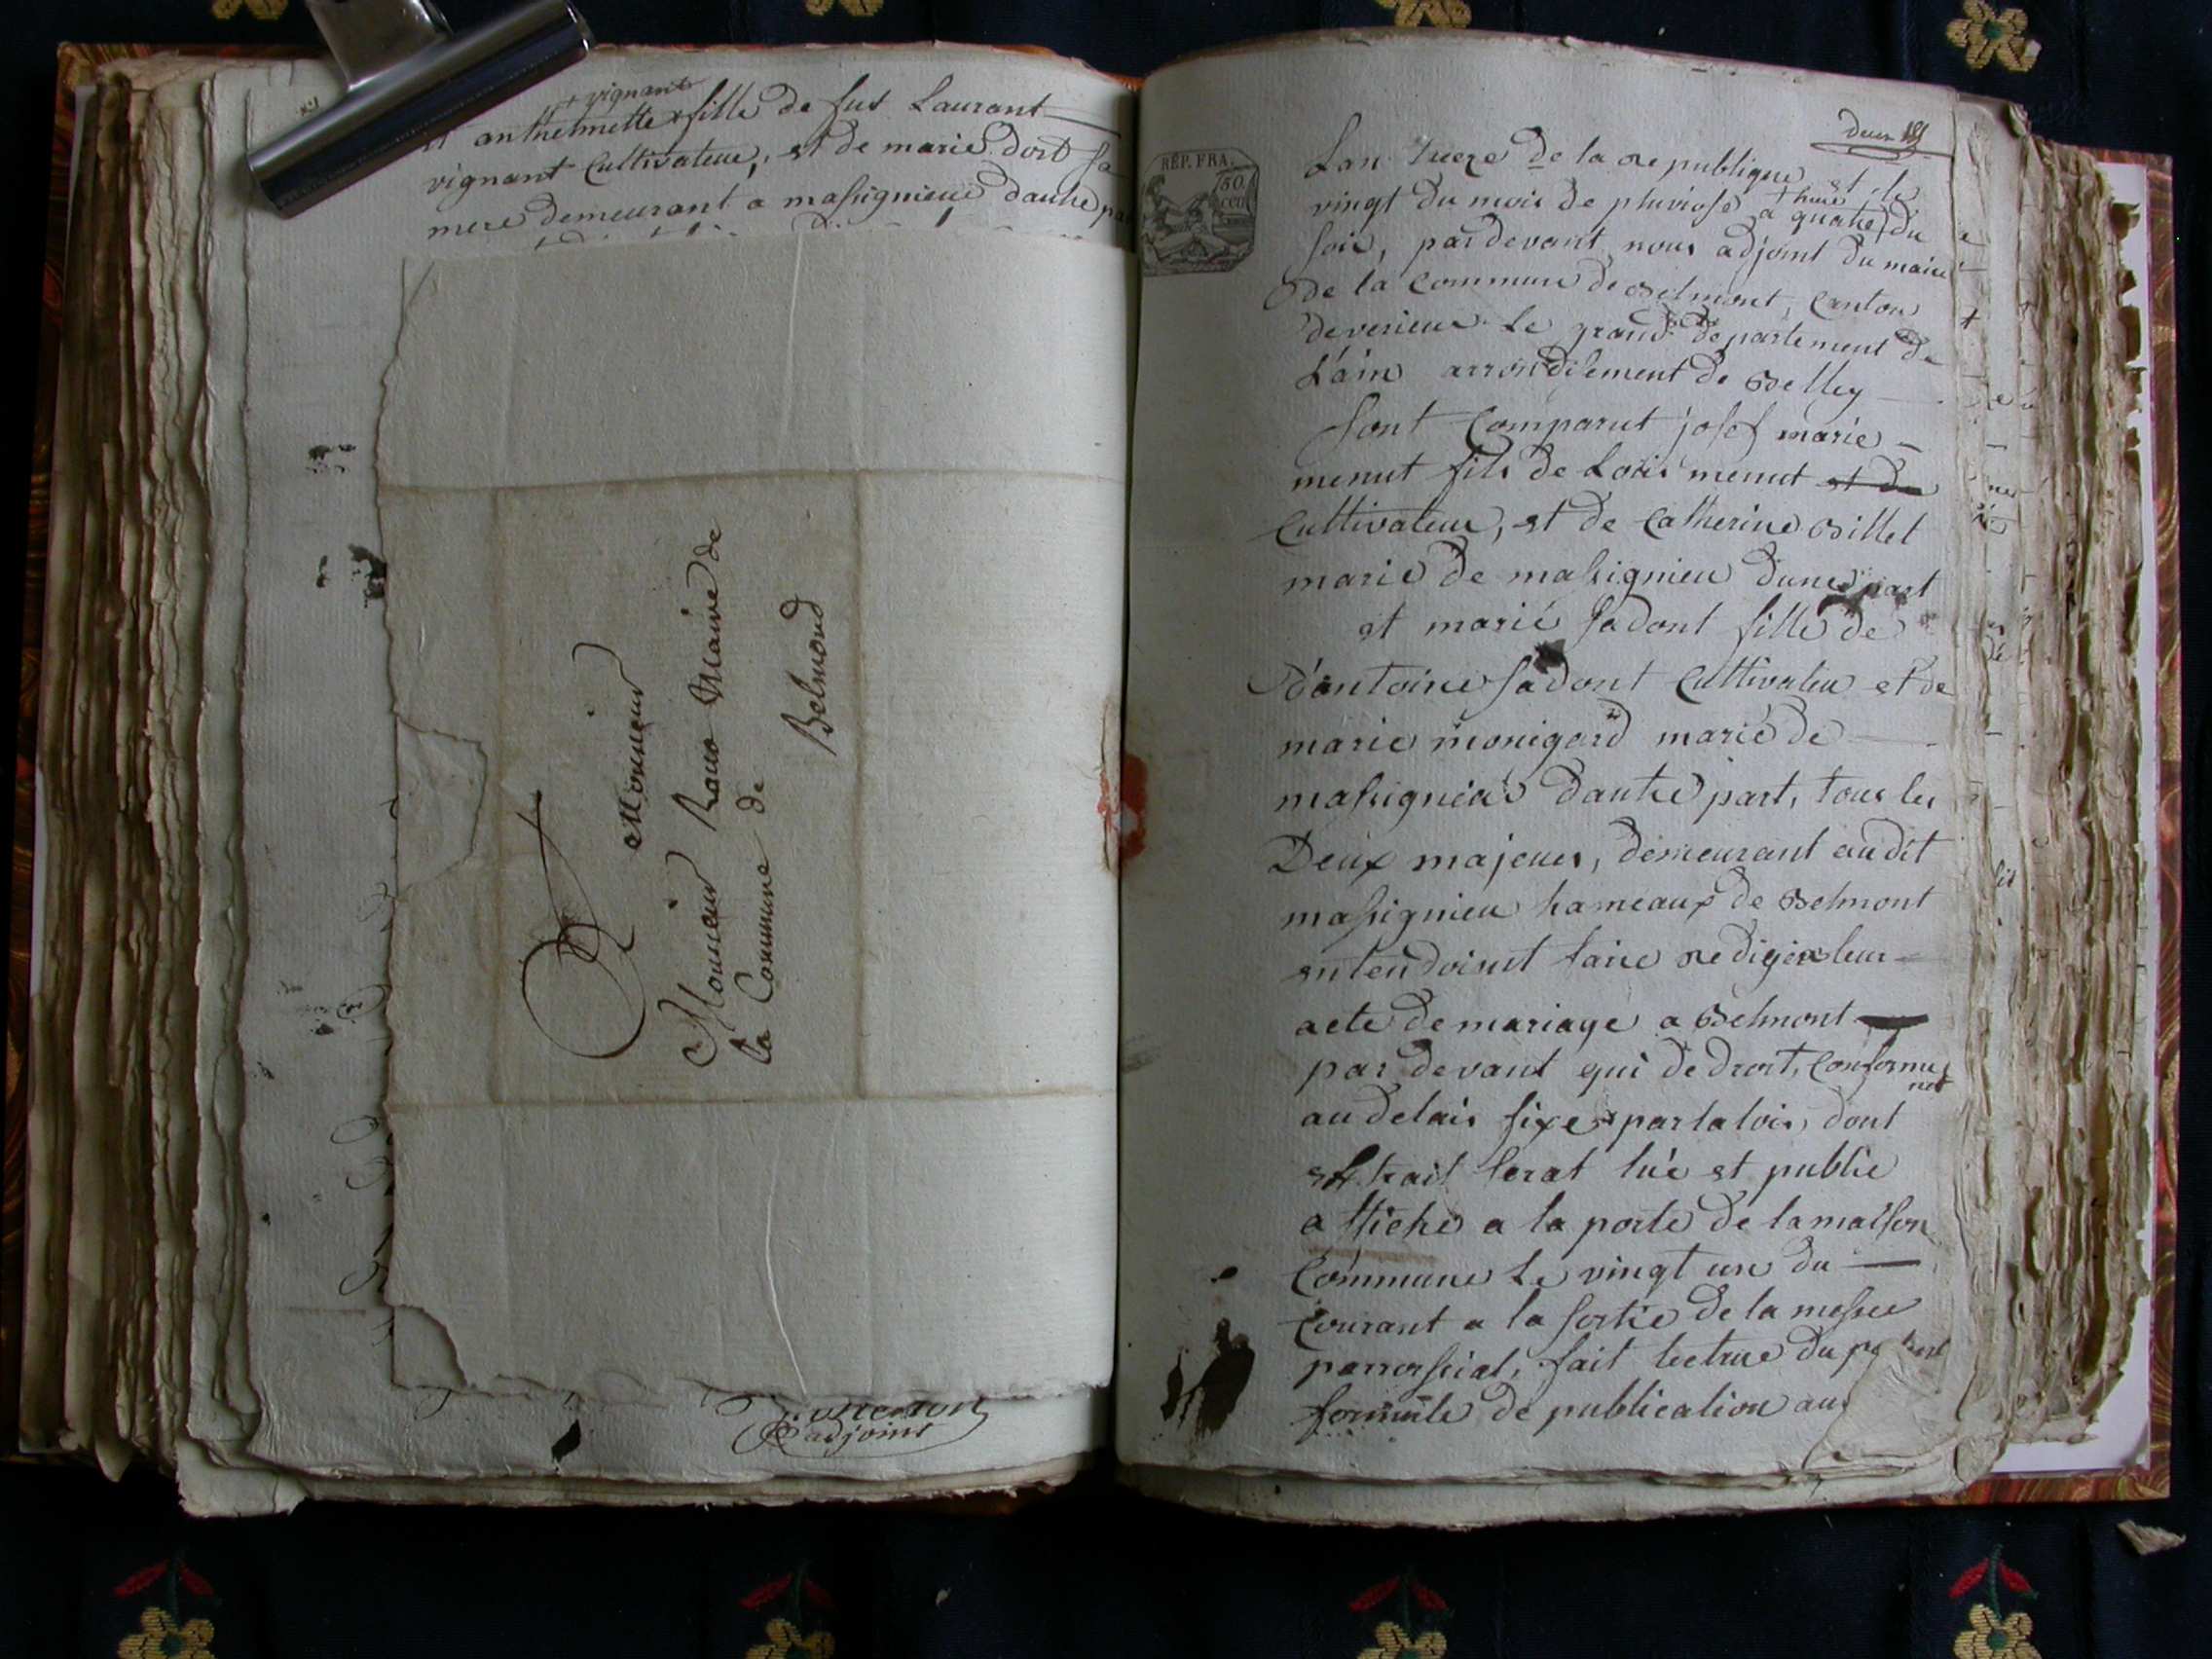 + vignant
et anthelmette + fille de fut Laurant
vignant Cultivateur, et de marie dort sa
mere demeurant a massignieu dautre pa
A Monsieur
Monsieur Roux Maire de
la Commune de
Belmond
adjoint
deux
RÉP. FRA.
50.
CEN
Lan treze de la republique et le
vingt du mois de pluviose a quatre + heure du
soir, pardevant nous adjoint du maire
de la Commune de Belmont, Canton
de verieux Le grand departement de
L'ain arrondisement de Belley
Sont Comparut josef marie
menut fils de Louis menut et de
Cultivateur, et de Catherine Billet
marié de massignieu dune part
et marie sadont fille de
d'antoine sadont Cultivateur et de
marie monigard marié de
massignieu dautre part, tous les
Deux majeurs, demeurant audit
massignieu hameaux de Belmont
entendoint faire rediger leur
acte de mariage a Belmont
par devant qui de droit, Conforme
ment
au delais fixe par la lois, dont
extrait serat lué et publie
affiche a la porte de la maison
Commune Le vingt un du
Courant a la sortie de la messe
parroissial, fait lectrue du
formule de publication aux